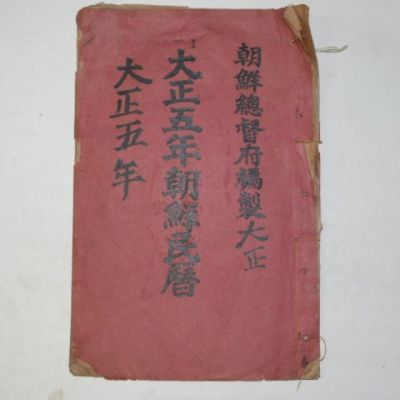 朝鮮總督府編製大正
大正五年朝鮮民曆
大正五年